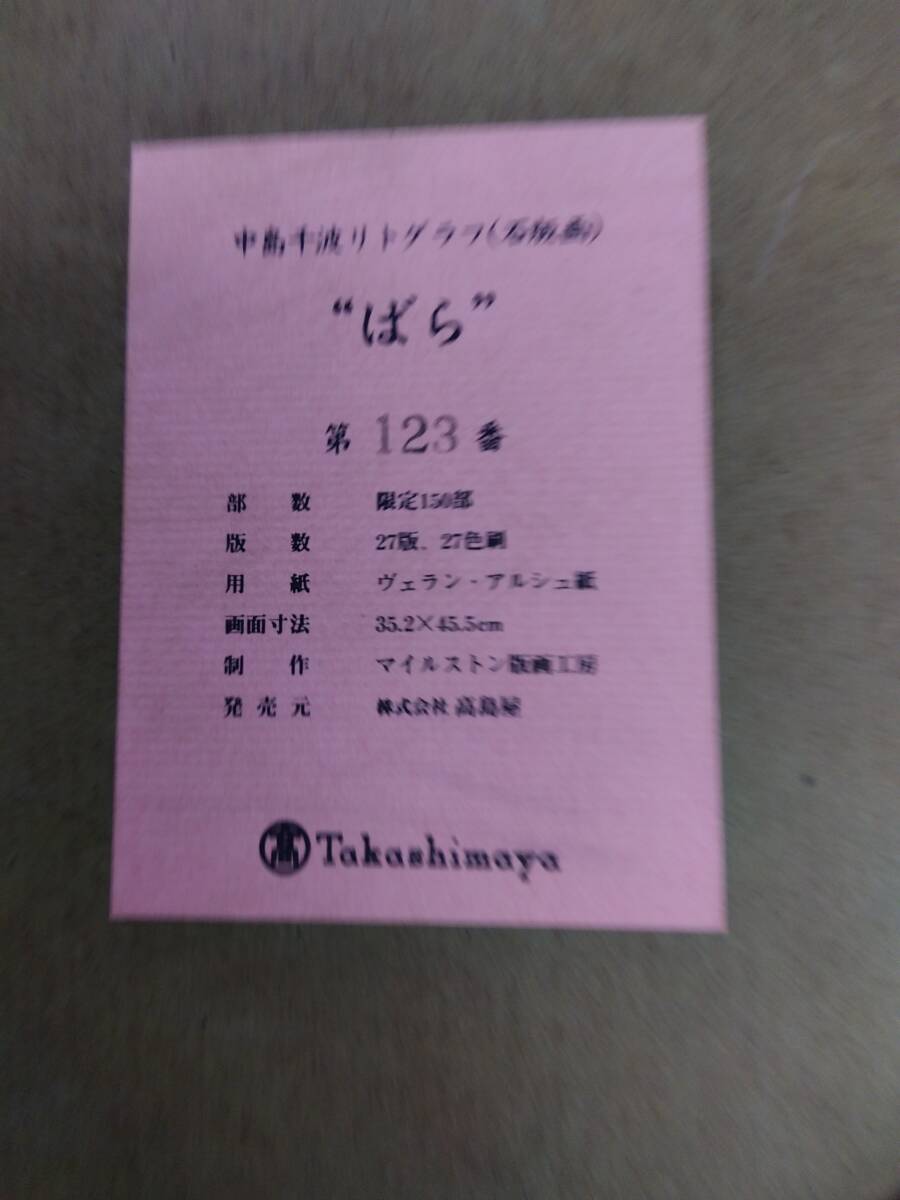 中島千波リトグラフ(石版画)
“ばら”
第 123 番
部 数 限定150部
版 数 27版、27色刷
用 紙 ヴェラン・アルシュ紙
画面寸法 35.2×45.5cm
制 作 マイルストン版画工房
発 売 元 株式会社 高島屋
髙 Takashimaya